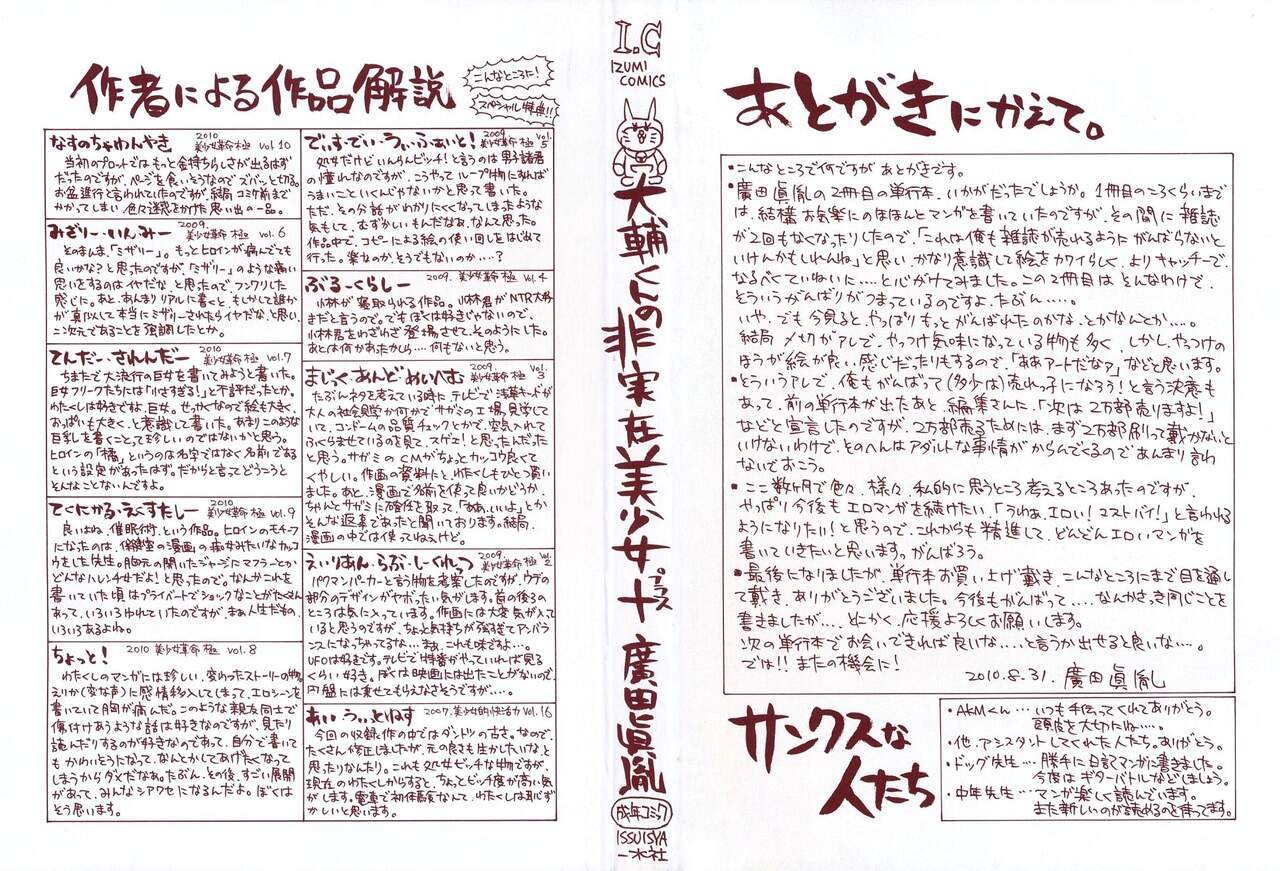 作者による作品解説
こんなところに!
スペシャル特典!!
なすのちゃわんやき 2010 美少女革命 極 vol 10
当初のプロットではもっと金持ちらしさが出るはず
だったのですが、ページを食いそうなのでズバッと切る。
お盆進行と言われていたのですが、結局コミケ前まで
かかってしまい、色々迷惑をかけた思い出の一品。
みざりー・いん・みー 2009 美少女革命 極 vol.6
そのまんま、「ミザリー」。もっとヒロインが病んでても
良いかな?と思ったのですが、「ミザリー」のような痛い
思いをするのはイヤだな、と思ったので、フンワリした
感じに。あと、あんまりリアルに書くと、もしかして誰か
が真似して本当にミザリーされたらイヤだな、と思い、
二次元であることを強調したとか。
てんだー・されんだー 2010 美少女革命 極 vol.7
ちまたで大流行の巨女を書いてみようと書いた。
巨女フリークたちには「小さすぎる!」と不評だったとか。
わたくしは好きですよ、巨女。せっかくなので絵も大きく、
おっぱいも大きく、と意識して書いた。あまりこのような
巨乳を書くことって珍しいのではないかと思う。
ヒロインの「橘」というのは名字ではなく名前である
という設定があったはず。だからと言ってどうこうと
そんなことないんですよ。
てくにかる・えくすたしー 2010 美少女革命 極 vol.9
良いよね、催眠術、という作品。ヒロインのモチーフ
になったのは、保健室の漫画の痴女みたいなカッコ
ウをした先生。胸元の開いたジャージにマフラーとか
どんなハレンチせだよ!と思ったので。なんかこれを
書いていた頃はプライベートでショックなことがたくさん
あって、いろいろゆれていたのですが、まぁ人生だもの、
いろいろあるよね。
ちょっと! 2010 美少女革命 極 vol.8
わたくしのマンガには珍しい、変わったストーリーの物。
えりか(変な声)に感情移入してしまって、エロシーンを
書いていて胸が痛んだ。このような親友同士で
傷付けあうような話は好きなのですが、見たり
読んだりするのが好きなのであって、自分で書いて
もかわいそうになって、なんとかしてあげたくなって
しまうからダメだなぁ。たぶん、その後、すごい展開
があって、みんなシアワセになるんだよ。ぼくは
そう思います。
でぃす・でぃ・うぃ・ふぁいと! 2009 美少女革命 極 vol.5
処女だけどいんらんビッチ!と言うのは男子諸君
の憧れなのですが、こうやってループ物にすれば
うまいこといくんじゃないかと思って書いた。
ただ、その分話がわかりにくくなってしまったような
気もして、むずかしいもんだなぁ、なんて思った。
作品中で、コピーによる絵の使い回しをはじめて
行った。楽なのか、そうでもないのか・・・・?
ぶるーくらしー 2009. 美少女革命 極 vol.4
小林が寝取られる作品。小林君がNTR大好
きだと言うので。でもぼくは好きじゃないので、
小林君をわざわざ登場させて、そのようにした。
あとは何かあったかしら・・・・何もないと思う。
まじっく・あんど・めいへむ 2009. 美少女革命 極 vol.3
たぶんネタを考えている時に、テレビで浅草キッドが
大人の社会見学か何かでサガミの工場見学して
いて、コンドームの品質チェックとかで、空気入れて
ふくらませているのを見て、スゲェ!と思ったんだった
と思う。サガミのCMがちょっとカッコウ良くて
くやしい。作画の資料だと、わたくしもひとつ買い
ました。あと、漫画で名前を使って良いかどうか、
ちゃんとサガミに確任を取って、「ああ、いいよ」とか
そんな返事であったと聞いております。結局、
漫画の中では使ってねぇけど。
えいりあん・らぶ・しーくれっつ 2009. 美少女革命 極 vol.2
パクマンパーカーと言う物を考案したのですが、ウデの
部分のデザインがヤボったい気がします。首の後ろの
ところは気に入っています。作画には大変気が入って
いると思うのですが、ちょっと気持ちが強すぎてアンバラ
ンスになっちゃってるな・・・まぁ、これも味ですよ・・・。
UFOは好きです。テレビで特番がやっていれば見る
くらい好き。ぼくは映画には出たことがないので、
円盤には乗せてもらえなさそうですが・・・。
あい・うぃっとねす 2007. 美少女的快活力 vol.16
今回の収録作の中ではダントツの古さ。なので、
たくさん修正しましたが、元の良さも生かしたいな、と
思ったりなんたり。これも処女ビッチな物ですが、
現在のわたくしからすると、ちょっとビッチ度が高い気
がします。電車で初体験なんて、わたくしは恥ず
かしいと思います。
I.C
IZUMI
COMICS
大輔くんの非実在美少女十 プラス 廣田眞胤
成年コミック
ISSUISYA
一水社
あとがきにかえて。
・こんなところで何ですが あとがきです。
・廣田眞胤の2冊目の単行本、いかがだったでしょうか。1冊目のころくらいまで
は、結構お気楽にのほほんとマンガを書いていたのですが、その間に雑誌
が2回もなくなったりしたので、「これは俺も雑誌が売れるようにがんばらないと
いけんかもしれんね」と思い、かなり意識して絵をカワイらしく、よりキャッチーで、
なるべくていねいに・・・・と心がけてみました。この2冊目はそんなわけで、
そういうがんばりがつまっているのですよ、たぶん・・・・。
いや、でも今見ると、やっぱりもっとがんばれたのかな、とかなんとか・・・。
結局〆切がアレで、やっつけ気味になっている物も多く、しかし、やっつけの
ほうが絵が良い感じだったりもするので、「ああアートだなぁ?」などと思います。
・とういうアレで、俺もがんばって(多少は)売れっ子になろう!と言う決意も
あって、前の単行本が出たあと、編集さんに、「次は2万部売りますよ!」
などと宣言したのですが、2万部売るためには、まず2万部刷って戴かないと
いけないわけで、そのへんはアダルトな事情がからんでくるのであんまり言わ
ないでおこう。
・ここ数ヶ月で色々、様々、私的に思うところ考えるところあったのですが、
やっぱり今後もエロマンガを続けたい、「うわぁ、エロい!マストバイ!」と言われる
ようになりたい!と思うので、これからも精進して、どんどんエロいマンガを
書いていきたいと思いますっ。がんばろう。
・最後になりましたが、単行本お買い上げ戴き、こんなところにまで目を通し
て戴き、ありがとうございました。今後もがんばって・・・・なんかさっき同じことを
書きましたが・・・、とにかく、応援よろしくお願いします。
次の単行本でお会いできれば良いな、・・・と言うか出せると良いな・・・。
では!!またの機会に!
2010.8.31. 廣田眞胤
サンクスな
人たち
・AKMくん・・・いつも手伝ってくれてありがとう。
頭皮を大切にね・・・。
・他、アシスタントしてくれた人たち。ありがとう。
・ドッグ先生・・・勝手に日記マンガに書きました。
今度はギターバトルなどしましょう。
・中年先生・・・マンガ楽しく読んでいます。
また新しいのが読めるのを待ってます。